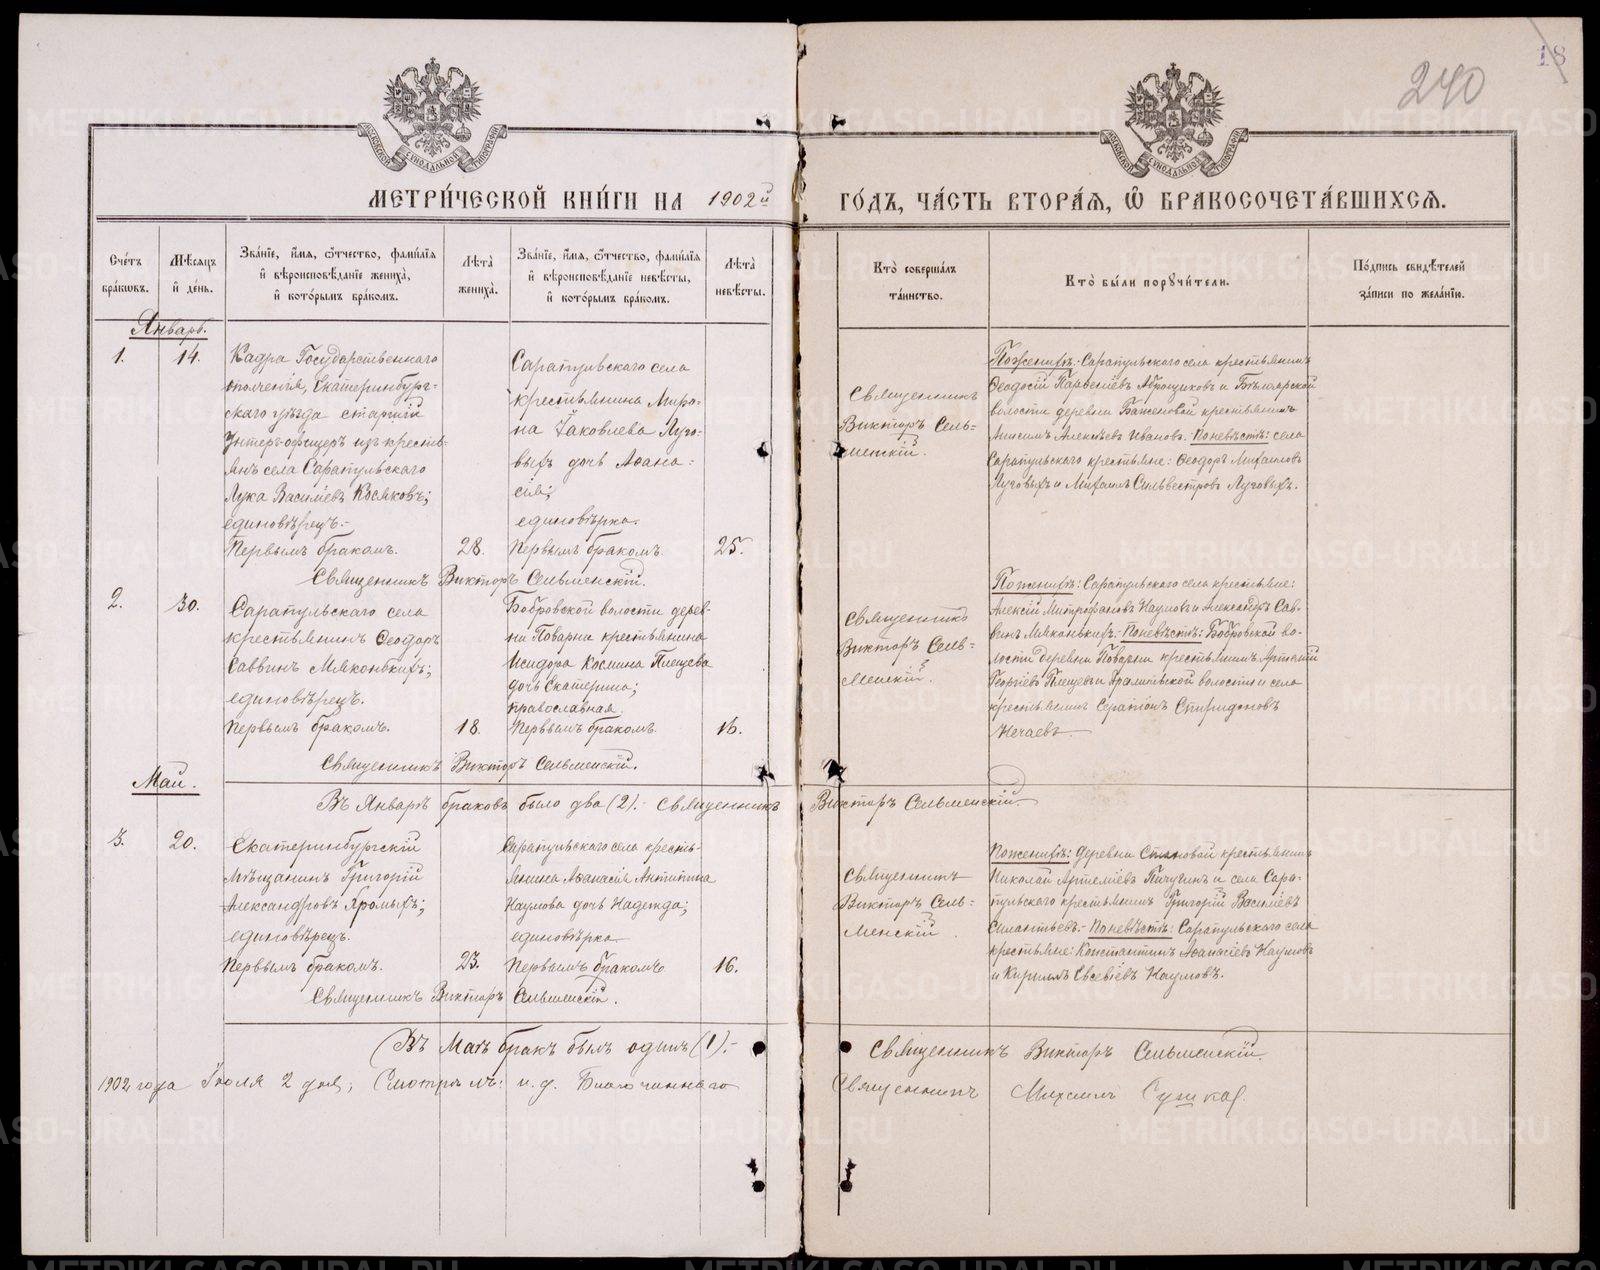 18
240
МОСКОВСКОЙ СѴНОДАЛЬНОЙ ТИПОГРАФІИ
МОСКОВСКОЙ СѴНОДАЛЬНОЙ ТИПОГРАФІИ
МЕТРИ́ЧЕСКОЙ КНИ́ГИ НА 1902й ГО́ДЪ, ЧА́СТЬ ВТОРА́Я, Ѡ БРАКОСОЧЕТА́ВШИХСЯ.
Сче́тъ бра́кѡвъ.
Мѣ́сяцъ и҆ де́нь.
Зва́нїе, и҆́мя, ѻ҆́тчество, фами́лїя и҆ вѣроисповѣ́данїе жениха̀, и҆ кото́рымъ бра́комъ.
Лѣ́та жениха̀.
Зва́нїе, и҆́мя, ѻ҆́тчество, фами́лїя и҆ вѣроисповѣ́данїе невѣ́сты, и҆ кото́рымъ бра́комъ.
Лѣ́та невѣ́сты.
Кто̀ соверша́лъ та́инство.
Кто̀ бы́ли порꙋчи́тели.
По́дпись свидѣ́телей за́писи по жела́нїю.
Январь.
1.
14.
Кадра Государственнаго
ополченія, Екатеринбург-
скаго уѣзда старшій
Унтеръ-офицеръ изъ кресть-
янъ села Сарапульскаго
Лука Василіевъ Косяковъ;
единовѣрецъ.-
Первымъ бракомъ.
28.
Сарапульскаго села
крестьянина Миро-
на Іаковлева Луго-
выхъ дочь Аѳана-
сія;
единовѣрка.
Первымъ бракомъ.
25.
Священникъ
Викторъ Сель-
менскій.
По женихѣ: Сарапульскаго села крестьянинъ
Ѳеодосій и Бѣлоярской
волости деревни Баженовой крестьянинъ
Анисимъ Алексѣевъ Ивановъ. По невѣстѣ: села
Сарапульскаго крестьяне: Ѳеодоръ Михаиловъ
Луговыхъ и Михаилъ Сильвестровъ Луговыхъ.
Священникъ Викторъ Сельменскій.
2.
30.
Сарапульскаго села
крестьянинъ Ѳеодоръ
Саввинъ Мяконькихъ;
единовѣрецъ.
Первымъ бракомъ.
18.
Бобровской волости дерев-
ни Поварни крестьянина
Исидора Космина Плещева
дочь Екатерина;
православная.
Первымъ бракомъ.
16.
Священникъ
Викторъ Сель-
менскій.
По женихѣ: Сарапульскаго села крестьяне:
Алексій Митрофановъ Наумовъ и Александръ Сав-
винъ Мяконькихъ. По невѣстѣ: Бобровской во-
лости деревни Поварни крестьянинъ Артемій
Георгіевъ Плещевъ и волости и села
крестьянинъ Серапіонъ Спиридоновъ
Нечаевъ.
Священникъ Викторъ Сельменскій.
Въ Январѣ браковъ было два (2).- Священникъ Викторъ Сельменскій.
Май.
3.
20.
Екатеринбургскій
мѣщанинъ Григорій
Александровъ Хромыхъ;
единовѣрецъ.
Первымъ бракомъ.
23.
Сарапульскаго села кресть-
янина Аѳанасія Антипина
Наумова дочь Надежда;
единовѣрка
Первымъ бракомъ
16.
Священникъ
Викторъ Сель-
менскій.
По женихѣ: деревни Становой крестьянинъ
Николай Артеміевъ Пичугинъ и села Сара-
пульскаго крестьянинъ Григорій Василіевъ
Силантьевъ.- По невѣстѣ: Сарапульскаго села
крестьяне: Константинъ Аѳанасіевъ Наумовъ
и Кириллъ Евсевіевъ Наумовъ.
Священникъ Викторъ Сельменскій.
Въ Маѣ бракъ былъ одинъ (1).- Священникъ Викторъ Сельменскій.
1902 года Іюля 2 дня; Смотрѣлъ: и. д. Благочиннаго Священникъ Михаилъ
METRIKI.GASO-URAL.RU